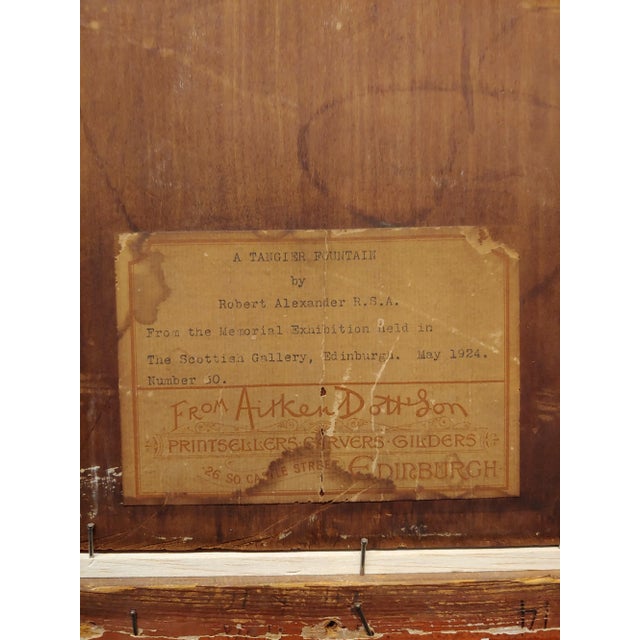 A TANGIER FOUNTAIN
by
Robert Alexander R.S.A.
From the Memorial Exhibition held in
The Scottish Gallery, Edinburgh. May 1924.
Number 50.
FROM Aitken Dott & Son
PRINTSELLERS · CARVERS · GILDERS
26 SO. CASTLE STREET EDINBURGH